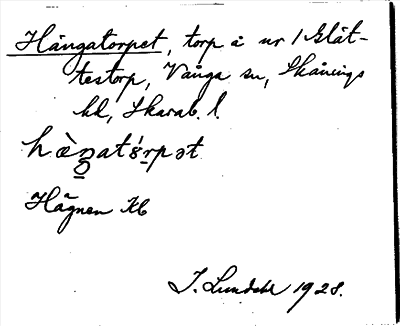 Hängatorpet, torp å nr 1 Slät-
testorp, Vånga sn, Skånings
hd, Skarab. l.
hæŋatórpət
Hägnen Kb
J. Lundahl 1928.